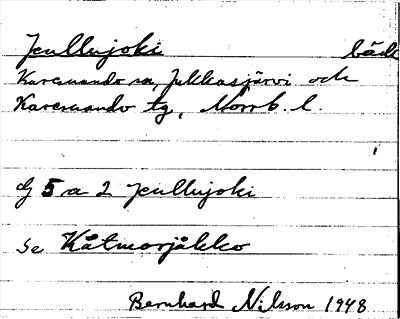 Jullujoki bäck
Karesuando sn, Jukkasjärvi och
Karesuando tg, Norrb. l.
dj 5 a 2 Jullujoki
Se Kåtmorjåkko
Bernhard Nilsson 1948